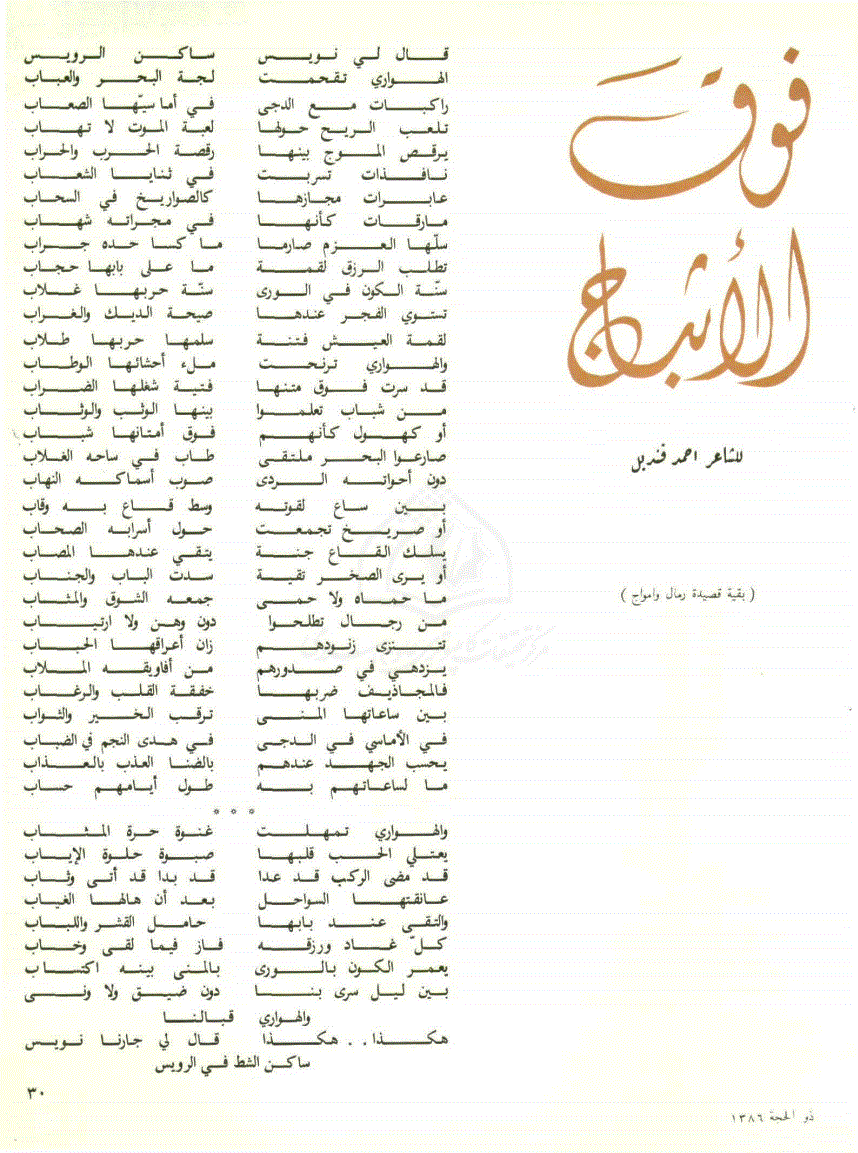 فوق
الأثباج
للشاعر احمد قنديل
( بقية قصيدة رمال وامواج )
قال لي نويس ساكن الرويس
الهواري تقحمت لجة البحر والعباب
راكبات مع الدجى في أماسيّها الصعاب
تلعب الريح حولها لعبة الموت لا تهاب
يرقص الموج بينها رقصة الحرب والحراب
نافذات تسربت في ثنايا الشعاب
عابرات مجازها كالصواريخ في السحاب
مارقات كأنها في مجراته شهاب
سلّها العزم صارما ما كسا حده جراب
تطلب الرزق لقمة ما على بابها حجاب
سنّة الكون في الورى سنّة حربها غلاب
تستوي الفجر عندها صيحة الديك والغراب
لقمة العيش فتنة سلمها حربها طلاب
والهواري ترنحت ملء أحشائها الوطاب
قد سرت فوق متنها فتية شغلها الضراب
من شباب تعلموا بينها الوثب والوثاب
أو كهول كأنهم فوق أمتانها شباب
صارعوا البحر ملتقى طاب في ساحه الغلاب
دون أحواته الردى صوب أسماكه النهاب
بين ساع لقوته وسط قاع به وقاب
أو صريخ تجمعت حول أسرابه الصحاب
يسلك القاع جنة يتقي عندها المصاب
أو يرى الصخر تقية سدت الباب والجناب
ما حماه ولا حمى جمعه الشوق والمثاب
من رجال تطلحوا دون وهن ولا ارتياب
تنزى زنودهم زان أعراقها الحباب
يزدهي في صدورهم من أفاويقه الملاب
فالمجاذيف ضربها خفقة القلب والرغاب
بين ساعاتها المنى ترقب الخير والثواب
في الأماسي في الدجى في هدى النجم في الضباب
يحسب الجهد عندهم بالضنا العذب بالعذاب
ما لساعاتهم به طول أيامهم حساب
* * *
والهواري تمهلت غنوة حرة المثاب
يعتلي الحب قلبها صبوة حلوة الإياب
قد مضى الركب قد عدا قد بدا قد أتى وثاب
عانقتها السواحل بعد أن هالها الغياب
والتقى عند بابها حامل القشر واللباب
كلّ غاد ورزقه فاز فيما لقى وخاب
يعمر الكون بالورى بالمنى بينه اكتساب
بين ليل سرى بنا دون ضيق ولا ونى
والهواري قبالنا
هكذا . . هكذا قال لي جارنا نويس
ساكن الشط في الرويس
٣٠
ذو الحجة ١٣٨٦